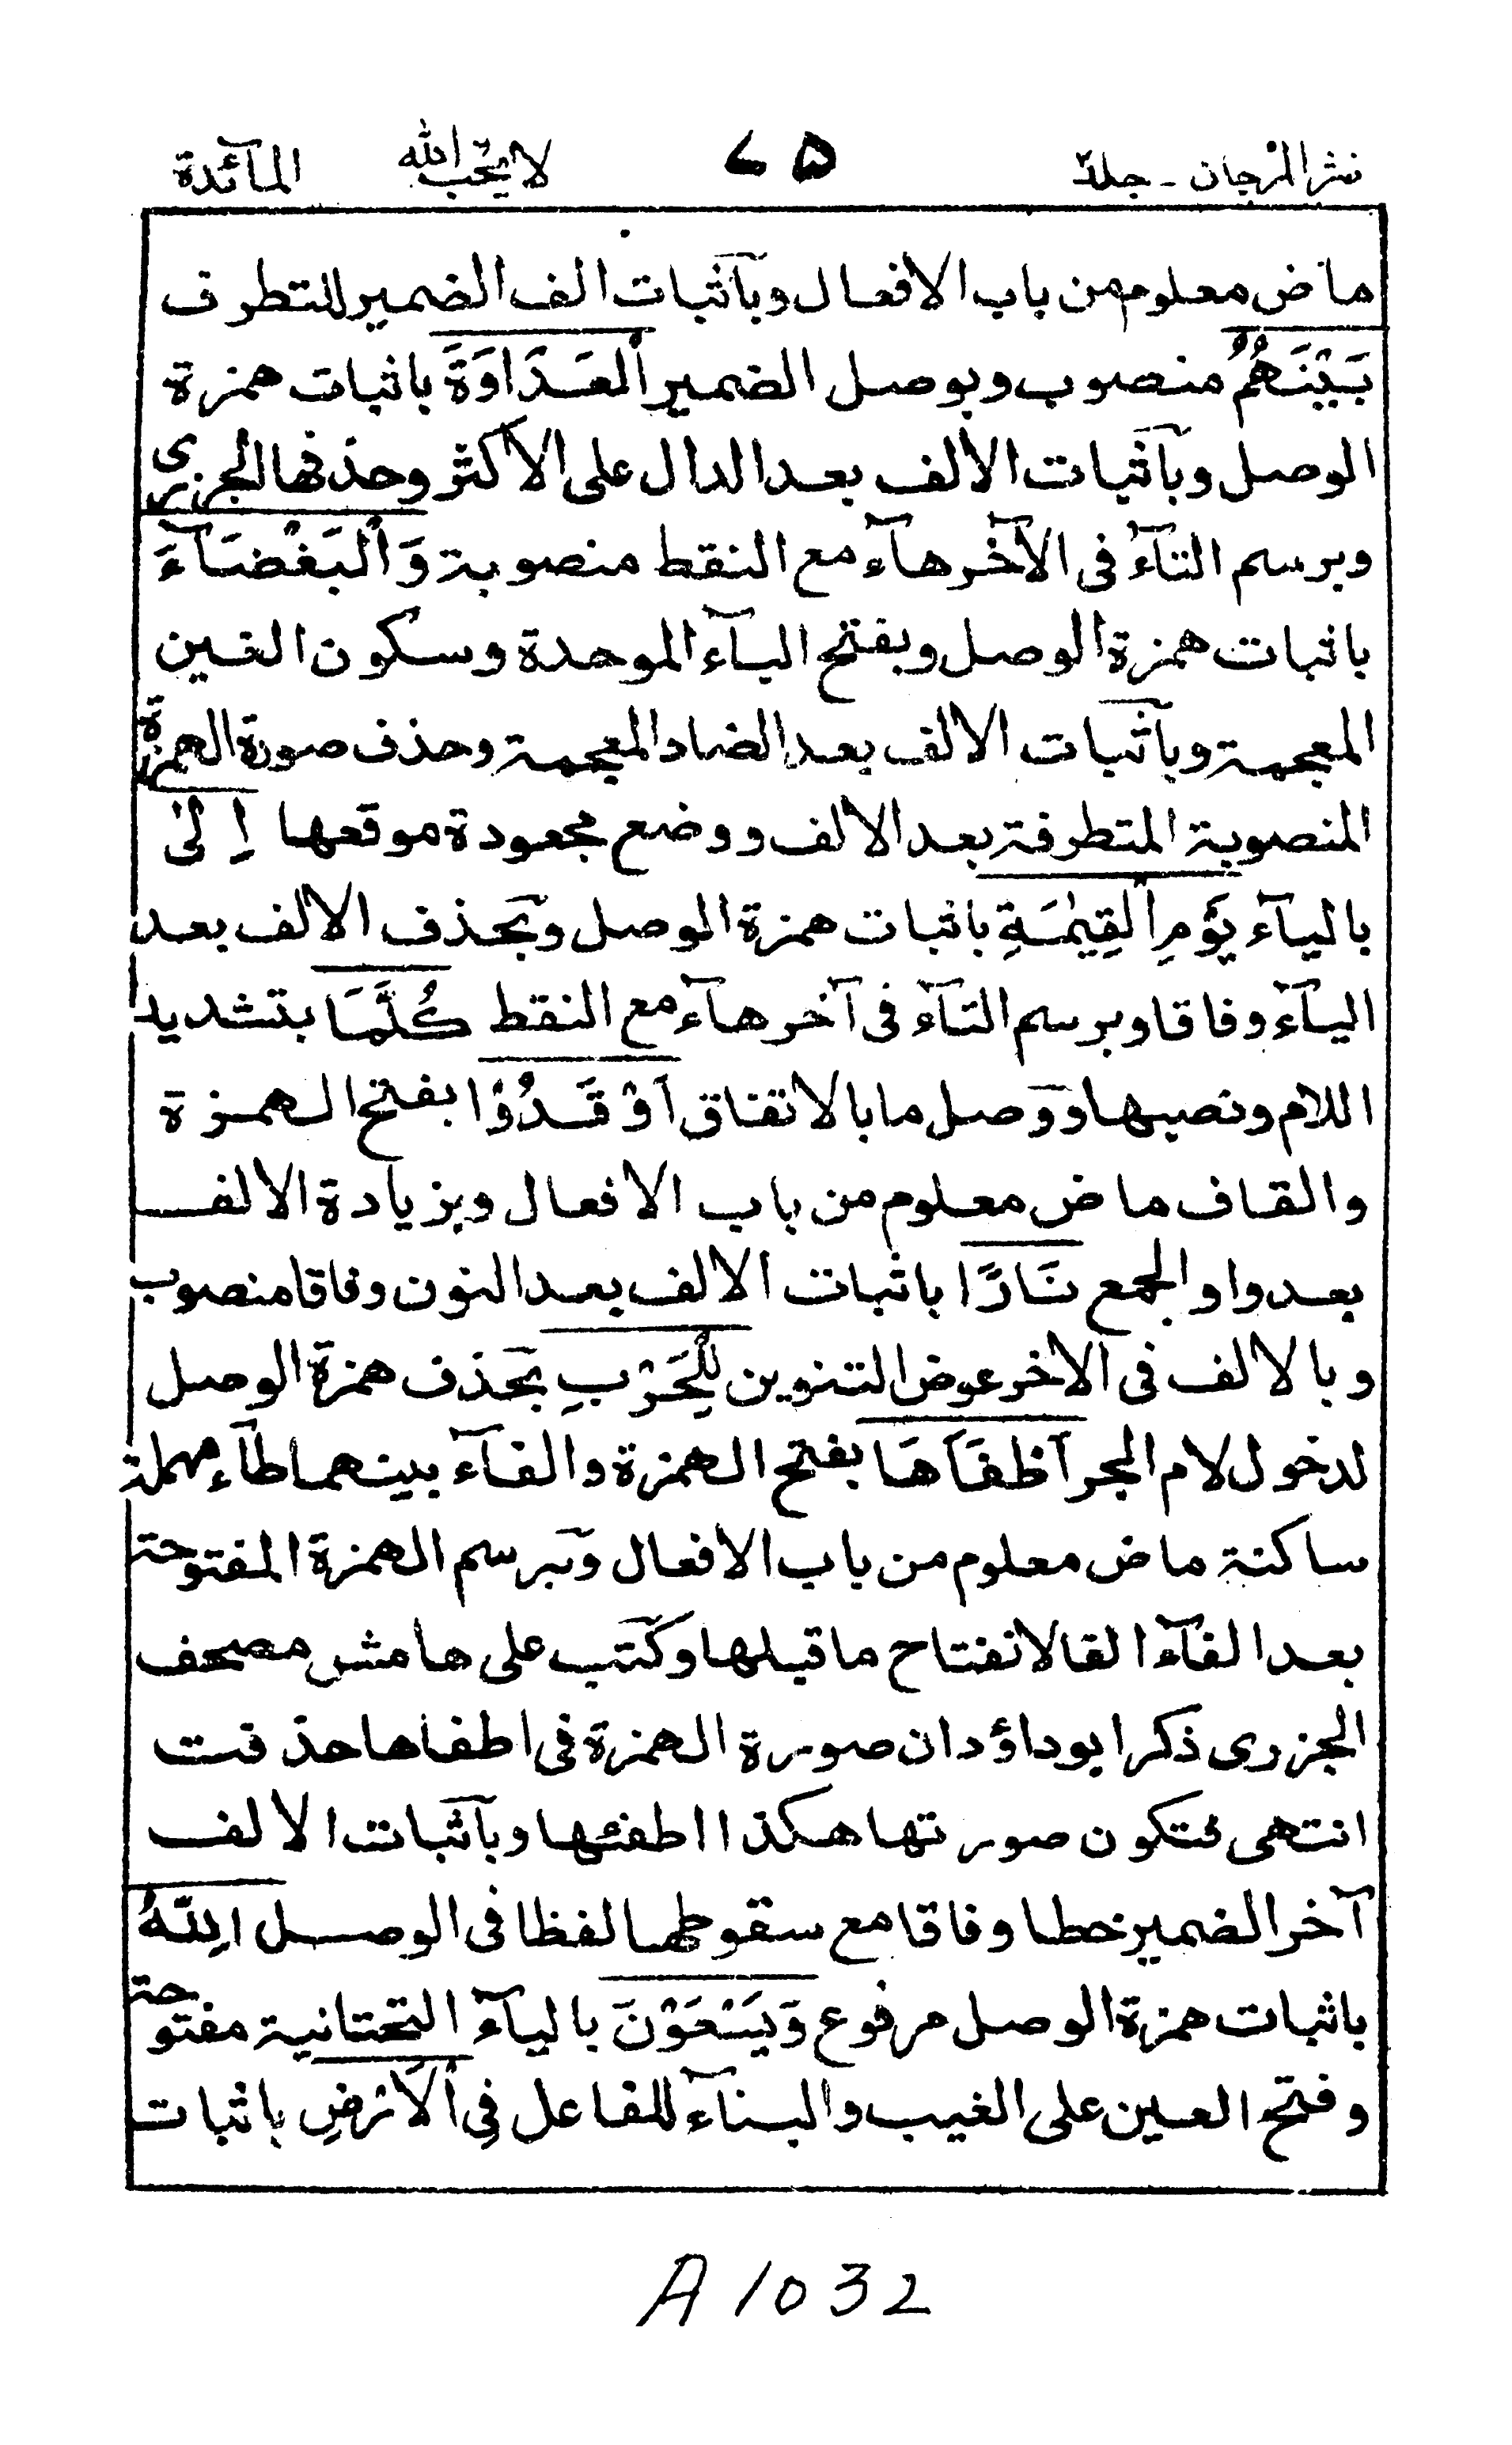 نثر المرجان - جلد۲ ۷۵ لا يحب الله المآئدة
ماض معلوم من باب الافعال وبآثبات الف الضمير للتطرف
بَيْنَهُمُ منصوب وبوصل الضمير اْلعَدَاوَةَ باثبات همزة
الوصل وبآثبات الالف بعد الدال على الاكثر وحذفها الجزرى
وبرسم التآء فى الآخر هآء مع النقط منصوبة وَاْلبَغْضَآءَ
باثبات همزة الوصل وبفتح البآء الموحدة وسكون الغين
المعجمة وبآثبات الالف بعد الضاد المعجمة وحذف صورة الهمزة
المنصوبة المتطرفة بعد الالف ووضع مجعودة موقعها اِلىٰ
باليآء يَوْمِ اْلقِيٰمَةِ باثبات همزة الوصل وبحذف الالف بعد
اليآء وفاقا وبرسم التآء فى آخر هآء مع النقط كُلَّمَا بتشديد
اللام ونصبها ووصل ما بالاتفاق اَوْقَدُوْا بفتح الهمزة
والقاف ماض معلوم من باب الافعال وبزيادة الالف
بعد واو الجمع نَارًا باثبات الالف بعد النون وفاقا منصوب
وبالالف فى الاخر عوض التنوين لِّلْحَرْبِ بحذف همزة الوصل
لدخول لام الجر اَطْفَاَهَا بفتح الهمزة والفآء بينهما طآء مهملة
ساكنة ماض معلوم من باب الافعال وبرسم الهمزة المفتوحة
بعد الفآء الفا لانفتاح ما قبلها وكتب على هامش مصحف
الجزرى ذكر ابو داؤد ان صورة الهمزة فى اطفاها حذفت
انتهى فتكون صورتها هكذا اطفئها وبآثبات الالف
آخر الضمير خطا وفاقا مع سقوطها لفظا فى الوصل اللّٰهُ
باثبات همزة الوصل مرفوع وَيَسْعَوْنَ باليآء التحتانية مفتوحة
وفتح العين على الغيب والبنآء للفاعل فِى اْلاَرْضِ باثبات
A 1032